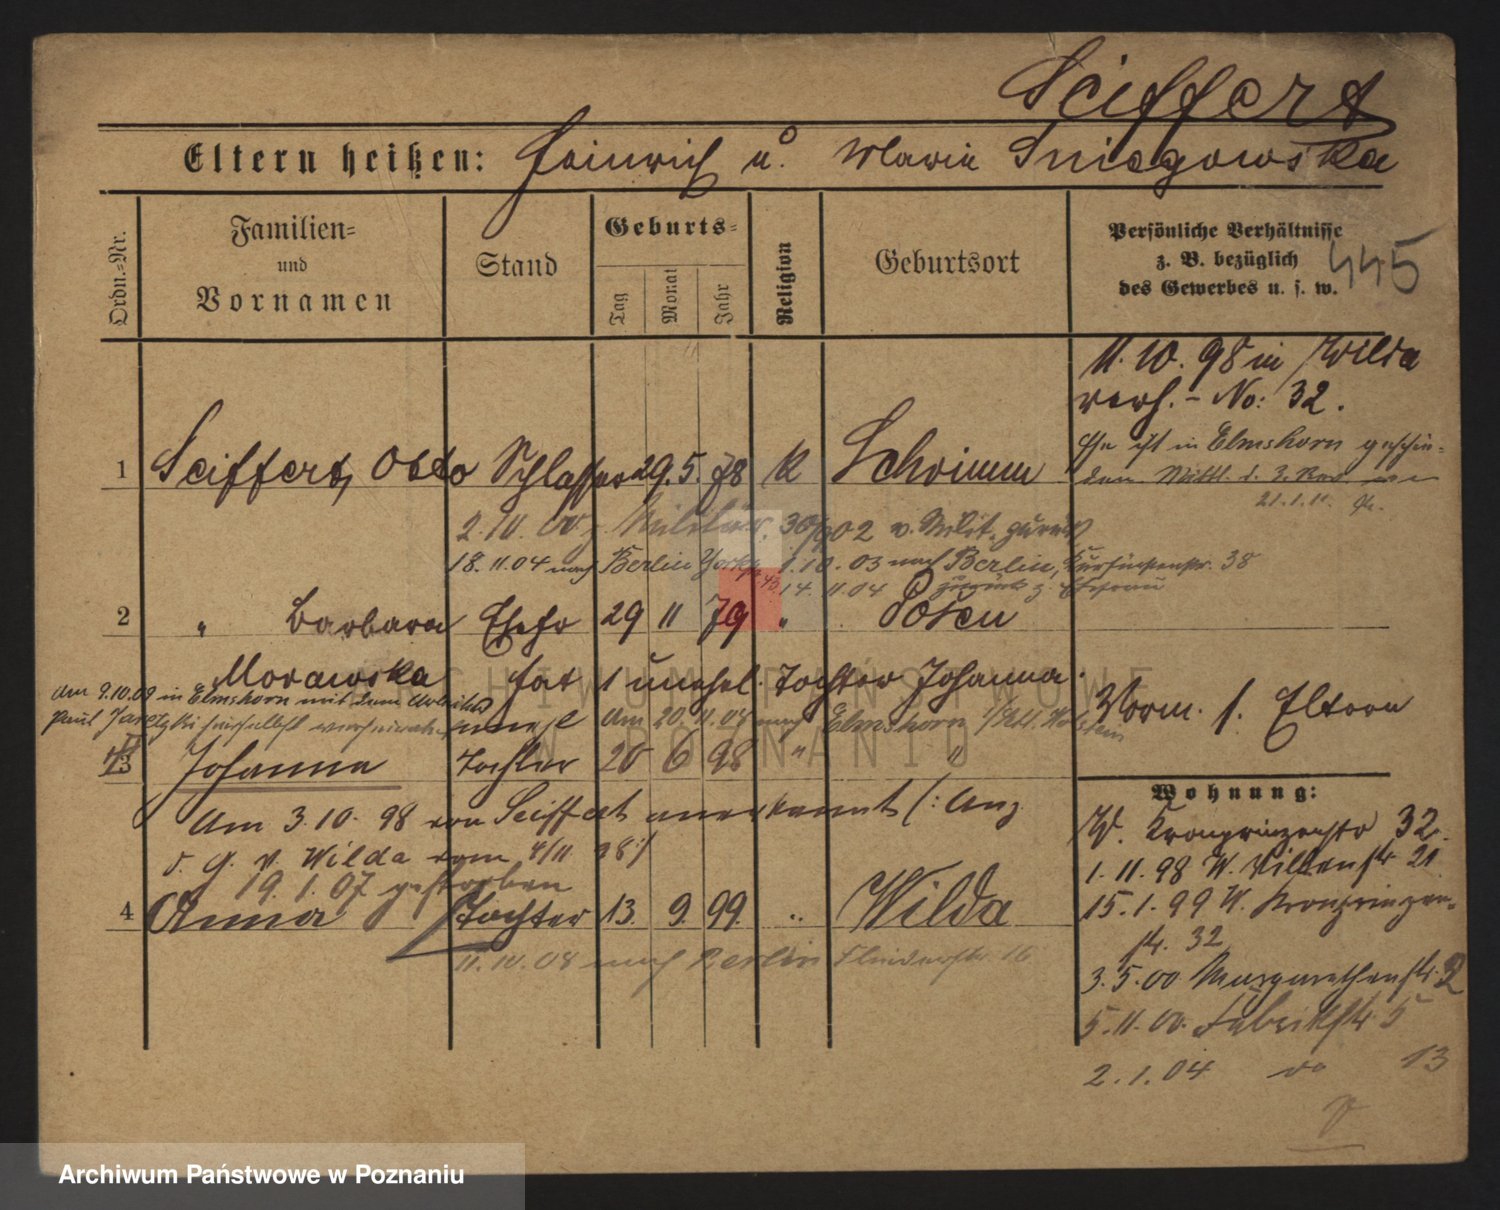 Seiffert
Eltern heißen: Heinrich u. Maria Sniegowska
Ordn.=Nr.
Familien=
und
Vornamen
Stand
Geburts=
Tag
Monat
Jahr
Religion
Geburtsort
Persönliche Verhältnisse
z. B. bezüglich
des Gewerbes u. s. w.
445
11. 10. 98 in Wilda
verh. - No: 32.
1 Seiffert, Otto Schlosser 29. 5. 78 K Schrimm
Ehe ist in Elmshorn geschie=
den Mittl. d. 3. Rev.
21.1.11.
2.10.00 z. Militär, 30/9 02 v. Milit. zurück
18.11.04 nach Berlin Yorkstr. 43 1.10.03 nach Berlin, Kurfürstenstr. 38
14. 11 04 zurück z. Ehefrau
2 " Barbara Ehefr 29 11 79 " Posen
Morawska hat 1 unehel. Tochter Johanna.
am 9.10.09 in Elmshorn mit dem Arbeiter
Paul Jaretzki verheiratet
Am 20.11.08 nach Elmshorn Holstein
Vorm. s. Eltern
3 Johanna unehl Tochter 20 6 98 " "
Am 3.10.98 von Seiffert anerkannt (: Anz
d. G. V. Wilda vom 4/11 98:)
19.1.07 gestorben
4 Anna Tochter 13. 9. 99. " Wilda
11.10.08 nach Berlin 16
Wohnung:
W. Kronprinzenstr 32.
1.11.98 W. 21
15.1.99 W. Kronprinzen=
str. 32
3.5.00 Margarethenstr. 2
5.11.00. Fabrikstr. 5
2.1.04 do 13
ARCHIWUM PAŃSTWOWE
W POZNANIU
Archiwum Państwowe w Poznaniu